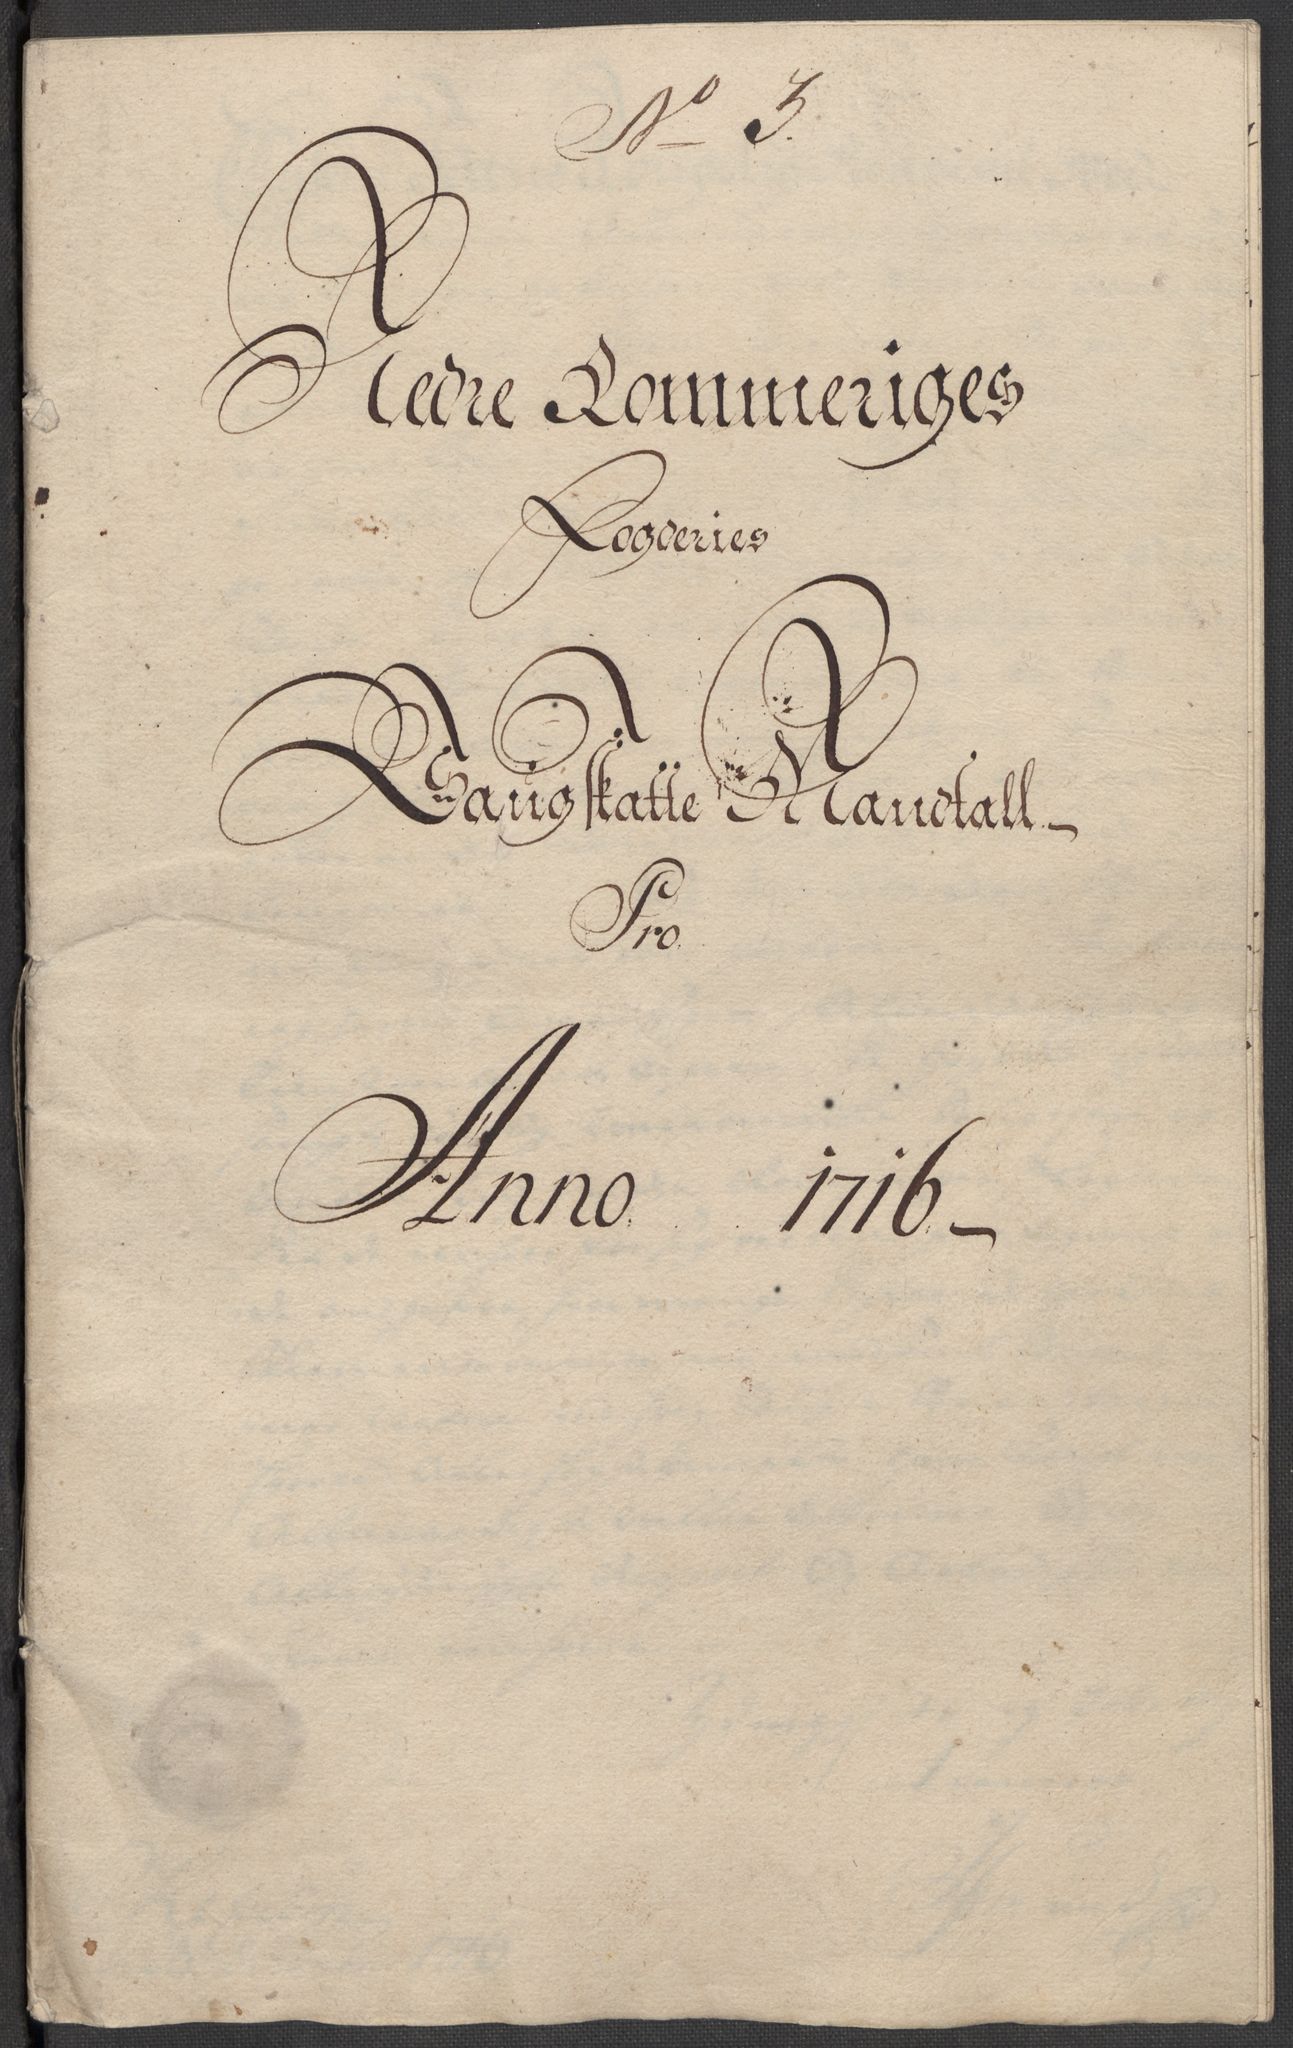 No 3.
Nedre Rommeriges
Fogderies
Saugskatte Mandtall
Pro
Anno 1716